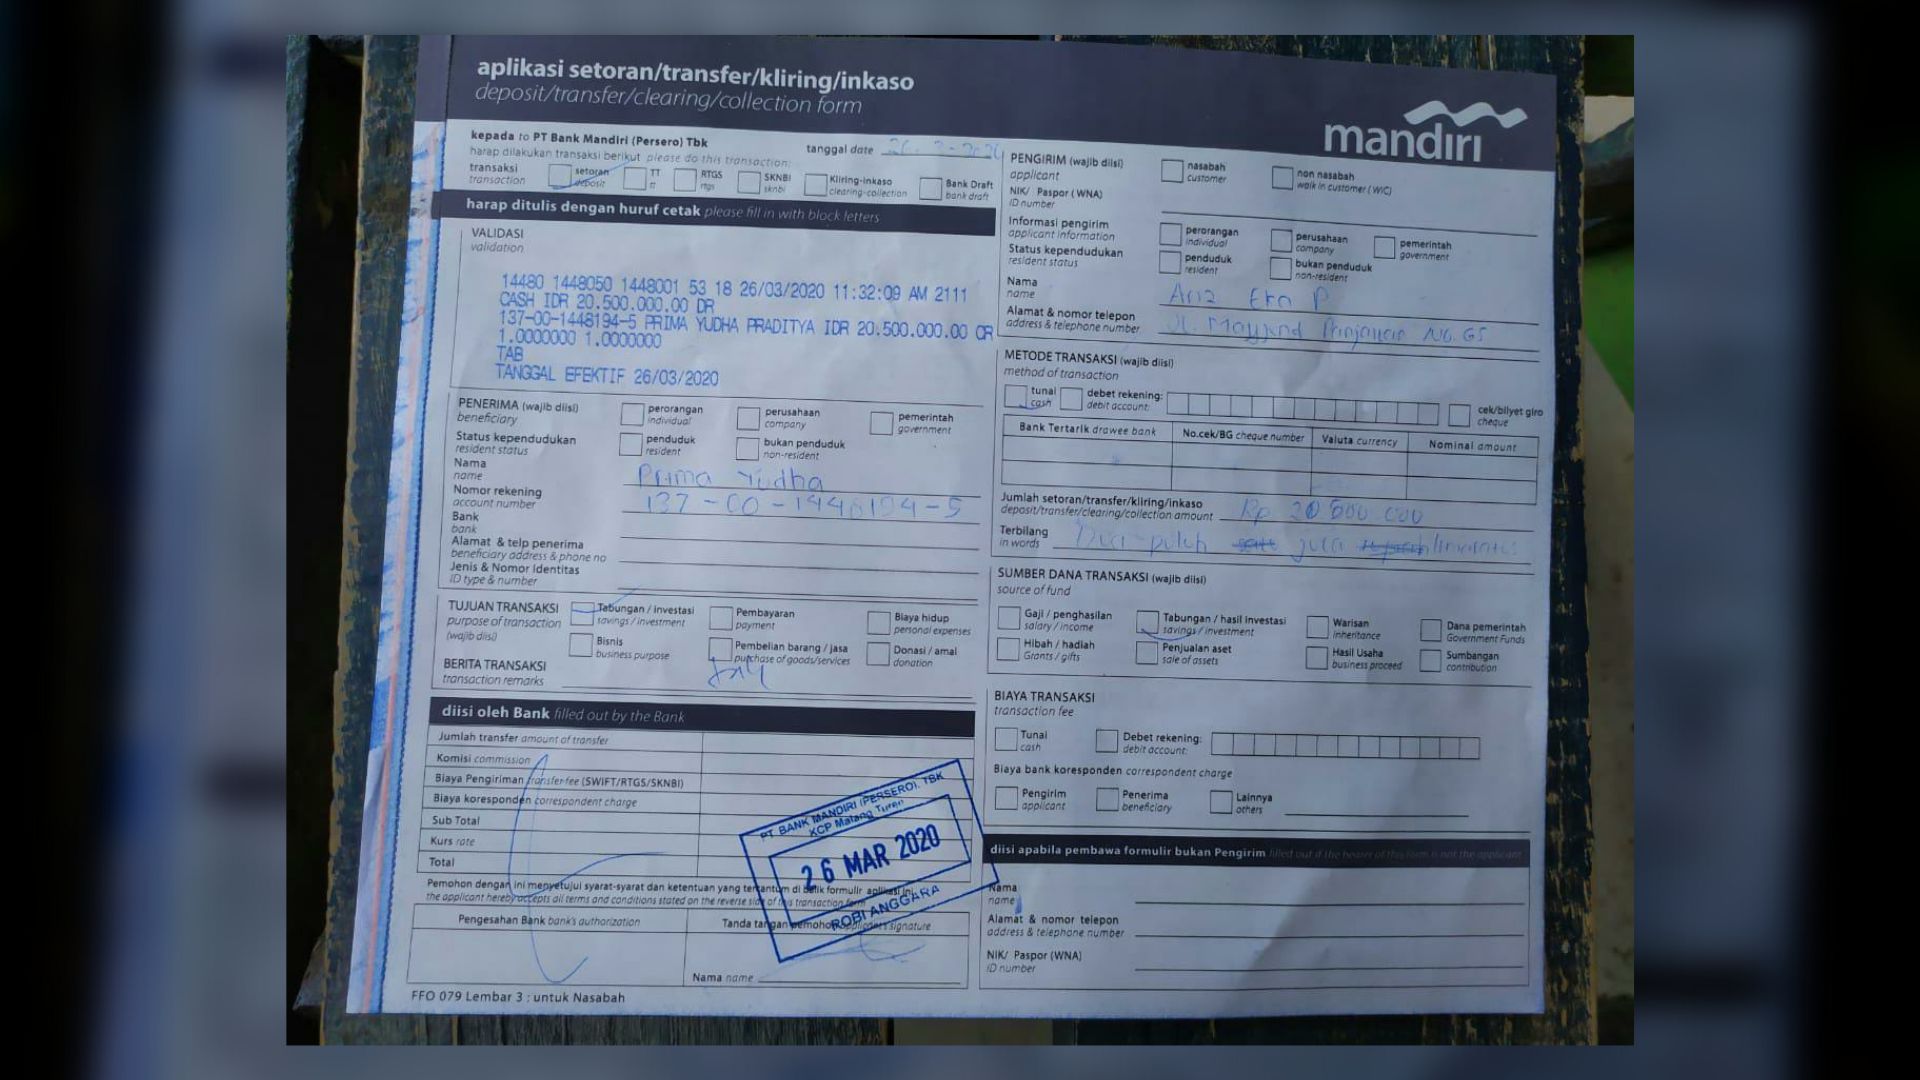 aplikasi setoran/transfer/kliring/inkaso
deposit/transfer/clearing/collection form
mandiri
kepada to PT Bank Mandiri (Persero) Tbk
harap dilakukan transaksi berikut please do this transaction:
tanggal date
transaksi
transaction
setoran
deposit
TT
tt
RTGS
rtgs
SKNBI
sknbi
Kliring-inkaso
clearing-collection
Bank Draft
bank draft
harap ditulis dengan huruf cetak please fill in with block letters
VALIDASI
validation
14480 1448050 1448001 53 18 26/03/2020 11:32:09 AM 2111
CASH IDR 20.500.000.00 DR
137-00-1448194-5 PRIMA YUDHA PRADITYA IDR 20.500.000.00 CR
1.0000000 1.0000000
TAB
TANGGAL EFEKTIF 26/03/2020
PENERIMA (wajib diisi)
beneficiary
perorangan
individual
perusahaan
company
pemerintah
government
Status kependudukan
resident status
penduduk
resident
bukan penduduk
non-resident
Nama
name
Prima Yudha
Nomor rekening
account number
137-00-1448194-5
Bank
bank
Alamat & telp penerima
beneficiary address & phone no
Jenis & Nomor Identitas
ID type & number
TUJUAN TRANSAKSI
purpose of transaction
(wajib diisi)
Tabungan / investasi
savings / investment
Pembayaran
payment
Biaya hidup
personal expenses
Bisnis
business purpose
Pembelian barang / jasa
purchase of goods/services
Donasi / amal
donation
BERITA TRANSAKSI
transaction remarks
diisi oleh Bank filled out by the Bank
Jumlah transfer amount of transfer
Komisi commission
Biaya Pengiriman transfer fee (SWIFT/RTGS/SKNBI)
Biaya koresponden correspondent charge
Sub Total
Kurs rate
Total
Pemohon dengan ini menyetujui syarat-syarat dan ketentuan yang tercantum di balik formulir aplikasi ini.
the applicant hereby accepts all terms and conditions stated on the reverse side of this transaction form
Pengesahan Bank bank's authorization
Tanda tangan pemohon applicant's signature
Nama name
PT BANK MANDIRI (PERSERO), TBK
KCP Malang Turen
26 MAR 2020
ROBI ANGGARA
FFO 079 Lembar 3 : untuk Nasabah
PENGIRIM (wajib diisi)
applicant
nasabah
customer
non nasabah
walk in customer (WIC)
NIK/ Paspor (WNA)
ID number
Informasi pengirim
applicant information
perorangan
individual
perusahaan
company
pemerintah
government
Status kependudukan
resident status
penduduk
resident
bukan penduduk
non-resident
Nama
name
Eka P
Alamat & nomor telepon
address & telephone number
Jl. Mayjend Panjaitan No. 65
METODE TRANSAKSI (wajib diisi)
method of transaction
tunai
cash
debet rekening:
debit account:
cek/bilyet giro
cheque
Bank Tertarik drawee bank
No.cek/BG cheque number
Valuta currency
Nominal amount
Jumlah setoran/transfer/kliring/inkaso
deposit/transfer/clearing/collection amount
Rp 20 500 000
Terbilang
in words
Dua puluh juta
SUMBER DANA TRANSAKSI (wajib diisi)
source of fund
Gaji / penghasilan
salary / income
Tabungan / hasil investasi
savings / investment
Warisan
inheritance
Dana pemerintah
Government Funds
Hibah / hadiah
Grants / gifts
Penjualan aset
sale of assets
Hasil Usaha
business proceed
Sumbangan
contribution
BIAYA TRANSAKSI
transaction fee
Tunai
cash
Debet rekening:
debit account:
Biaya bank koresponden correspondent charge
Pengirim
applicant
Penerima
beneficiary
Lainnya
others
diisi apabila pembawa formulir bukan Pengirim filled out if the bearer of this form is not the applicant
Nama
name
Alamat & nomor telepon
address & telephone number
NIK/ Paspor (WNA)
ID number